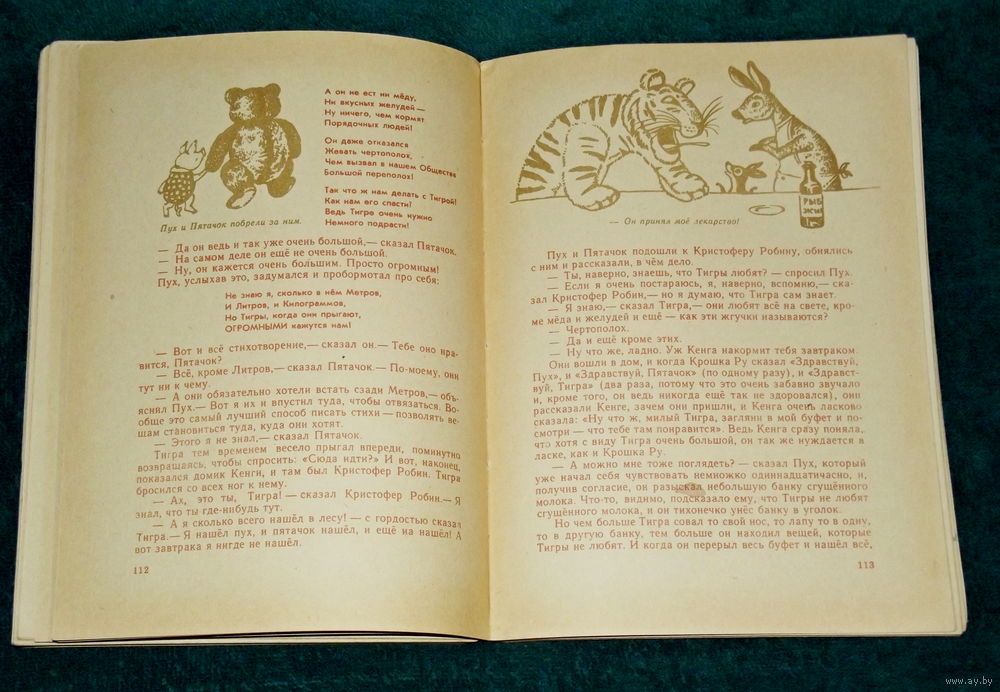 А он не ест ни мёду,
Ни вкусных желудей —
Ну ничего, чем кормят
Порядочных людей!
Он даже отказался
Жевать чертополох,
Чем вызвал в нашем Обществе
Большой переполох!
Так что ж нам делать с Тигрой?
Как нам его спасти?
Ведь Тигре очень нужно
Немного подрасти!
Пух и Пятачок побрели за ним.
— Да он ведь и так уже очень большой,— сказал Пятачок.
— На самом деле он ещё не очень большой.
— Ну, он кажется очень большим. Просто огромным!
Пух, услыхав это, задумался и пробормотал про себя:
Не знаю я, сколько в нём Метров,
И Литров, и Килограммов,
Но Тигры, когда они прыгают,
ОГРОМНЫМИ кажутся нам!
— Вот и всё стихотворение,— сказал он.— Тебе оно нра-
вится, Пятачок?
— Всё, кроме Литров,— сказал Пятачок.— По-моему, они
тут ни к чему.
— А они обязательно хотели встать сзади Метров,— объ-
яснил Пух.— Вот я их и впустил туда, чтобы отвязаться. Во-
обще это самый лучший способ писать стихи — позволять ве-
щам становиться туда, куда они хотят.
— Этого я не знал,— сказал Пятачок.
Тигра тем временем весело прыгал впереди, поминутно
возвращаясь, чтобы спросить: «Сюда идти?» И вот, наконец,
показался домик Кенги, и там был Кристофер Робин. Тигра
бросился со всех ног к нему.
— Ах, это ты, Тигра! — сказал Кристофер Робин.— Я
знал, что ты где-нибудь тут.
— А я сколько всего нашёл в лесу! — с гордостью сказал
Тигра.— Я нашёл пух, и пятачок нашёл, и ещё иа нашёл! А
вот завтрака я нигде не нашёл.
112
РЫБ
ЖИ
— Он принял моё лекарство!
Пух и Пятачок подошли к Кристоферу Робину, обнялись
с ним и рассказали, в чём дело.
— Ты, наверно, знаешь, что Тигры любят? — спросил Пух.
— Если я очень постараюсь, я, наверно, вспомню,— ска-
зал Кристофер Робин,— но я думаю, что Тигра сам знает.
— Я знаю,— сказал Тигра,— они любят всё на свете, кро-
ме мёда и желудей и ещё — как эти жгучки называются?
— Чертополох.
— Да и ещё кроме этих.
— Ну что же, ладно. Уж Кенга накормит тебя завтраком.
Они вошли в дом, и когда Крошка Ру сказал «Здравствуй,
Пух», и «Здравствуй, Пятачок» (по одному разу), и «Здравст-
вуй, Тигра» (два раза, потому что это очень забавно звучало
и, кроме того, он ведь никогда ещё так не здоровался), они
рассказали Кенге, зачем они пришли, и Кенга очень ласково
сказала: «Ну что ж, милый Тигра, загляни в мой буфет и по-
смотри — что тебе там понравится». Ведь Кенга сразу поняла,
что хотя с виду Тигра очень большой, он так же нуждается в
ласке, как и Крошка Ру.
— А можно мне тоже поглядеть? — сказал Пух, который
уже начал себя чувствовать немножко одиннадцатичасно, и,
получив согласие, он разыскал небольшую банку сгущённого
молока. Что-то, видимо, подсказало ему, что Тигры не любят
сгущённого молока, и он тихонечко унёс банку в уголок.
Но чем больше Тигра совал то свой нос, то лапу то в одну,
то в другую банку, тем больше он находил вещей, которые
Тигры не любят. И когда он перерыл весь буфет и нашёл всё,
113
www.ay.by